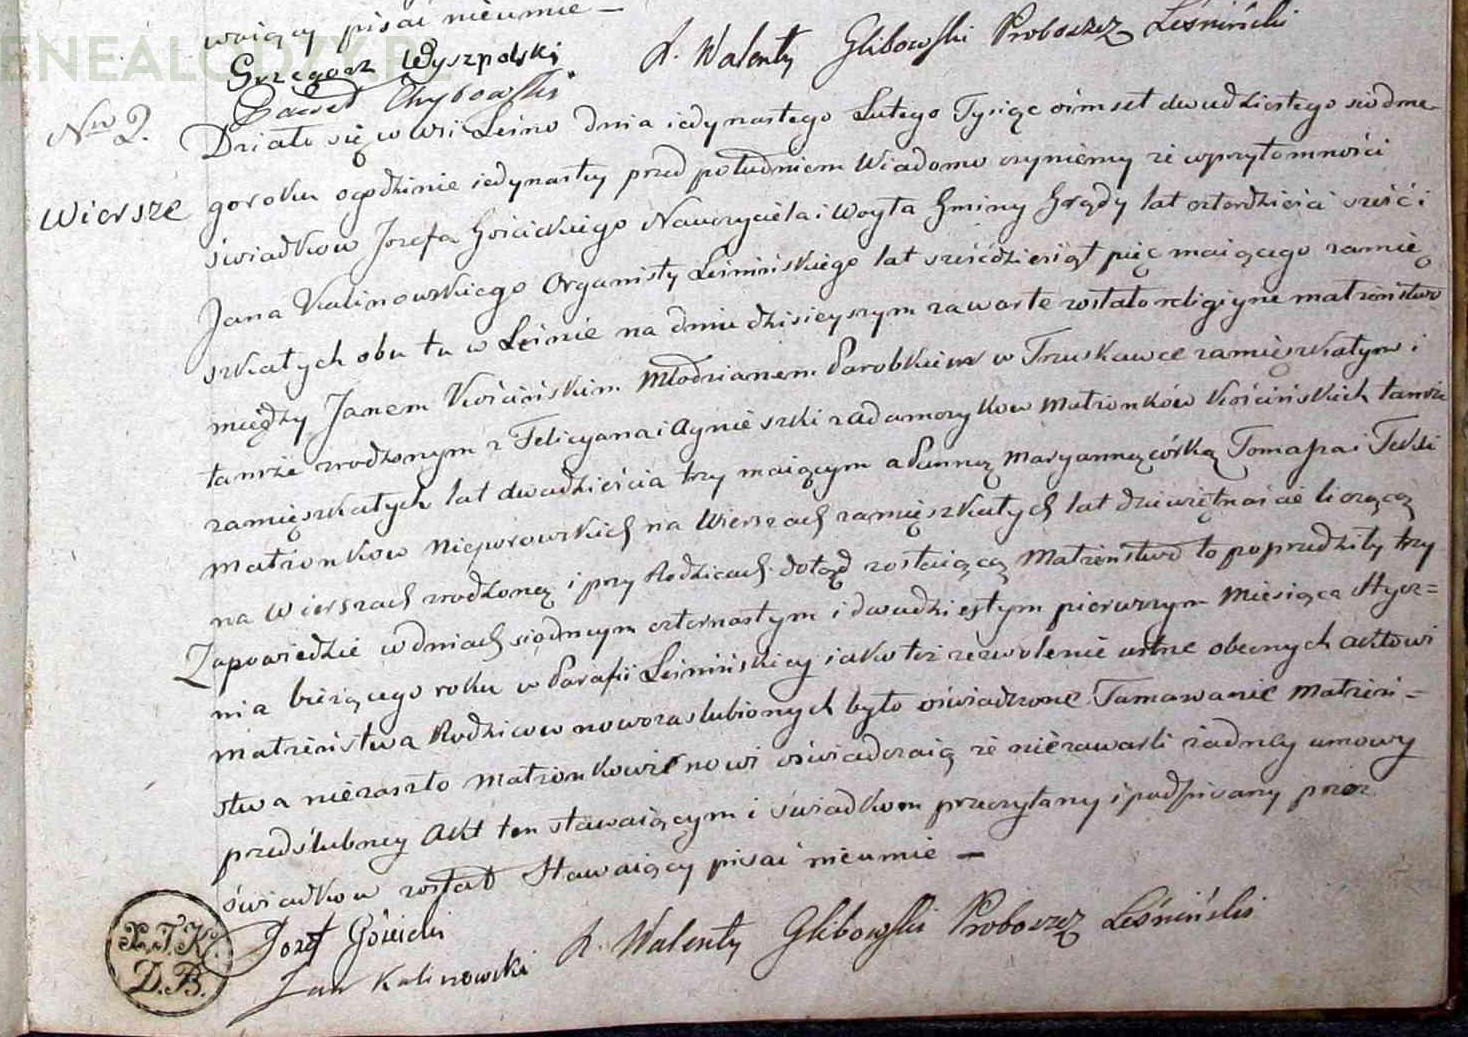 waiący pisać nieumie —
Grzegorz Wyszpolski X. Walenty Glibowski Proboszcz Leśniński
Paweł Chybowski
ENEALODZY.PL
Nro 2.
Wiersze
Działo się w wsi Leśno dnia iedynastego Lutego Tysiąc ośmset dwudziestego siodme
go roku o godzinie iedynastey przed południem Wiadomo czyniemy że wprzytomności
świadkow Jozefa Gościckiego Nauczyciela i Woyta Gminy Grądy lat czterdzieści sześć i
Jana Kalinowskiego Organisty Leśnińskiego lat sześćdziesiąt pięć maiącego zamię
szkałych obu tu w Leśnie na dniu dzisieyszym zawarte zostało religiyne małżeństwo
między Janem Kościńskim Młodzianem Parobkiem w Truskawce zamięszkałym i
tamże zrodzonym z Felicyana i Agnieszki z Adamczykow Małżonków Kościńskich tamże
zamięszkałych lat dwadzieścia trzy maiącym a Panną Maryanną córką Tomasza i Tekli
małżonkow Nieporowskich na Wierszach zamięszkałych lat dziewiętnaście liczącą
na Wierszach zrodzoną i przy Rodzicach dotąd zostaiącą Małżeństwo to poprzedziły trzy
Zapowiedzie w dniach siodmym czternastym i dwudziestym pierwszym Miesiąca Stycz=
nia bieżącego roku w Parafii Leśnińskiey iako też zezwolenie ustne obecnych aktowi
małżeństwa Rodzicow nowozaslubionych było oświadczone Tamowanie Małżeń=
stwa niezaszło Małżonkowie nowi oświadczaią że niezawarli żadney umowy
przedślubney Akt ten stawaiącym i świadkom przeczytany i podpisany przez
świadkow został Stawaiący pisać nieumie —
Jozef Gościcki X. Walenty Glibowski Proboszcz Leśniński
Jan Kalinowski
P.T.K.
D.B.